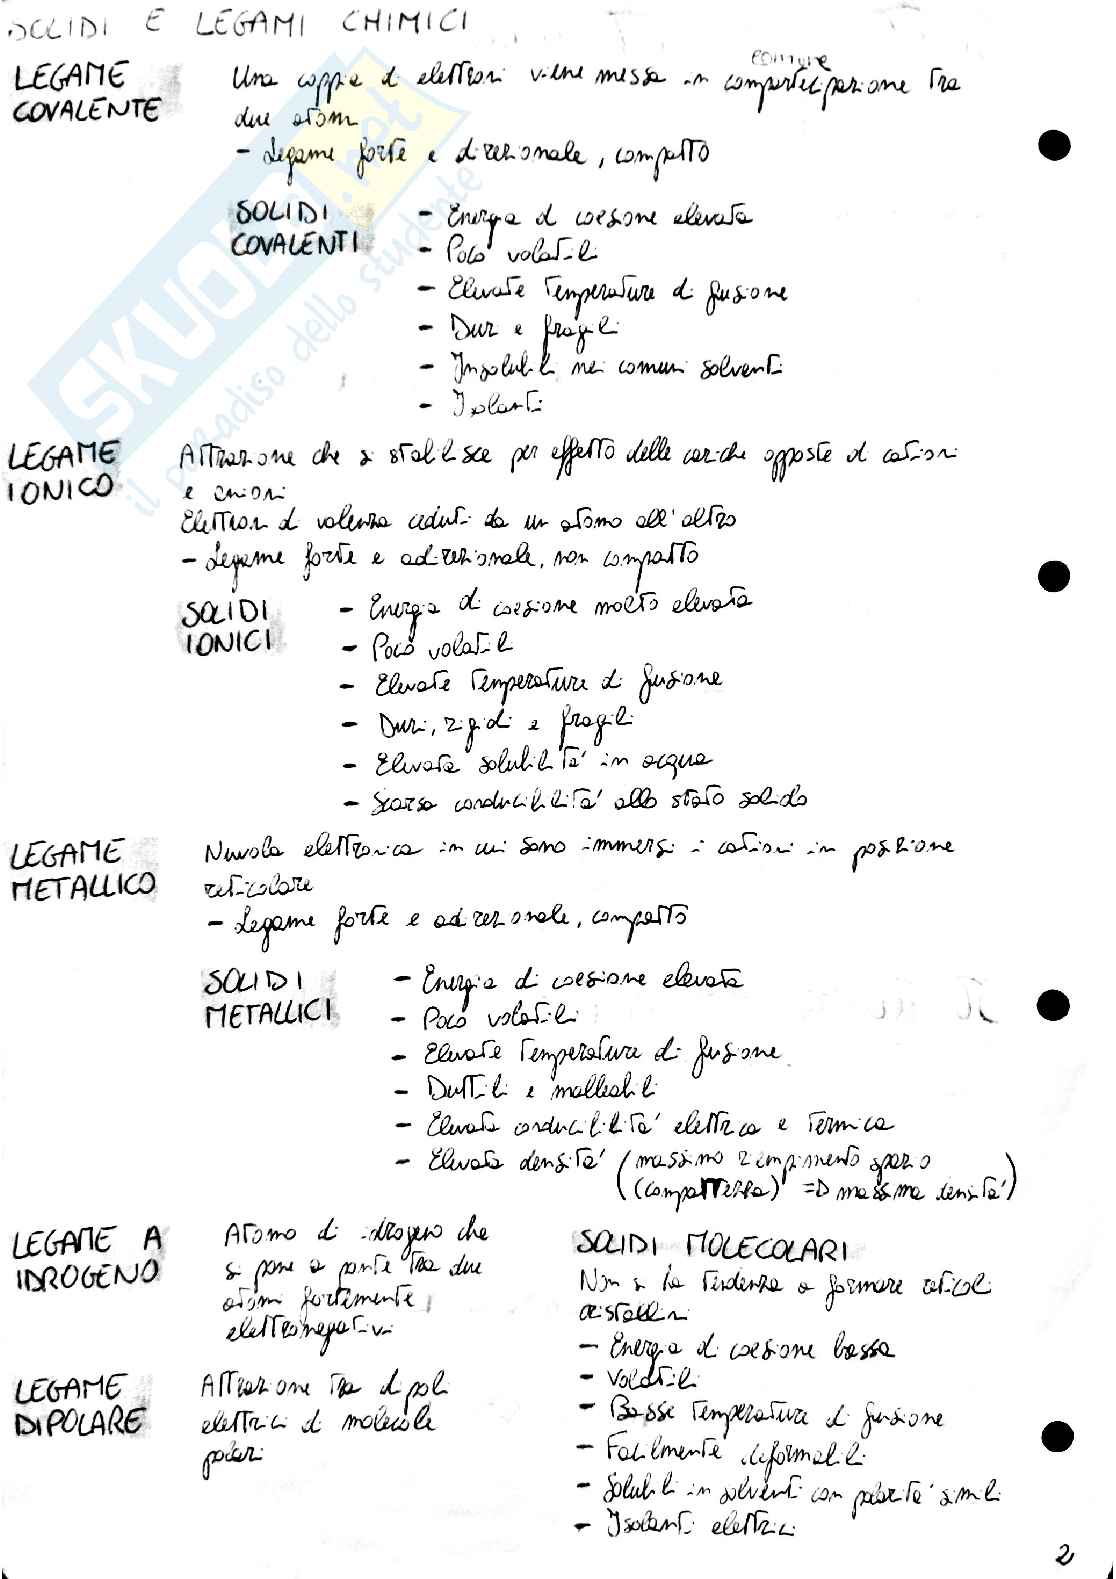 SOLIDI E LEGAMI CHIMICI
LEGAME COVALENTE
Una coppia di elettroni viene messa in compartecipazione tra
comune
due atomi
- Legame forte e direzionale, compatto
SOLIDI COVALENTI
- Energia di coesione elevata
- Poco volatili
- Elevate temperature di fusione
- Duri e fragili
- Insolubili nei comuni solventi
- Isolanti
SKUOLA.net
il paradiso dello studente
LEGAME IONICO
Attrazione che si stabilisce per effetto delle cariche opposte di cationi
e anioni
Elettroni di valenza ceduti da un atomo all'altro
- Legame forte e adirezionale, non compatto
SOLIDI IONICI
- Energia di coesione molto elevata
- Poco volatili
- Elevate temperature di fusione
- Duri, rigidi e fragili
- Elevata solubilità in acqua
- Scarsa conducibilità allo stato solido
LEGAME METALLICO
Nuvola elettronica in cui sono immersi i cationi in posizione
reticolare
- Legame forte e adirezionale, compatto
SOLIDI METALLICI
- Energia di coesione elevata
- Poco volatili
- Elevate temperature di fusione
- Duttili e malleabili
- Elevata conducibilità elettrica e termica
- Elevata densità (massimo riempimento spazio
(compattezza) => massima densità)
LEGAME A IDROGENO
Atomo di idrogeno che
si pone a ponte tra due
atomi fortemente
elettronegativi
LEGAME DIPOLARE
Attrazione tra dipoli
elettrici di molecole
polari
SOLIDI MOLECOLARI
Non si ha tendenza a formare reticoli
cristallini
- Energia di coesione bassa
- Volatili
- Basse temperature di fusione
- Facilmente deformabili
- Solubili in solventi con polarità simili
- Isolanti elettrici
2